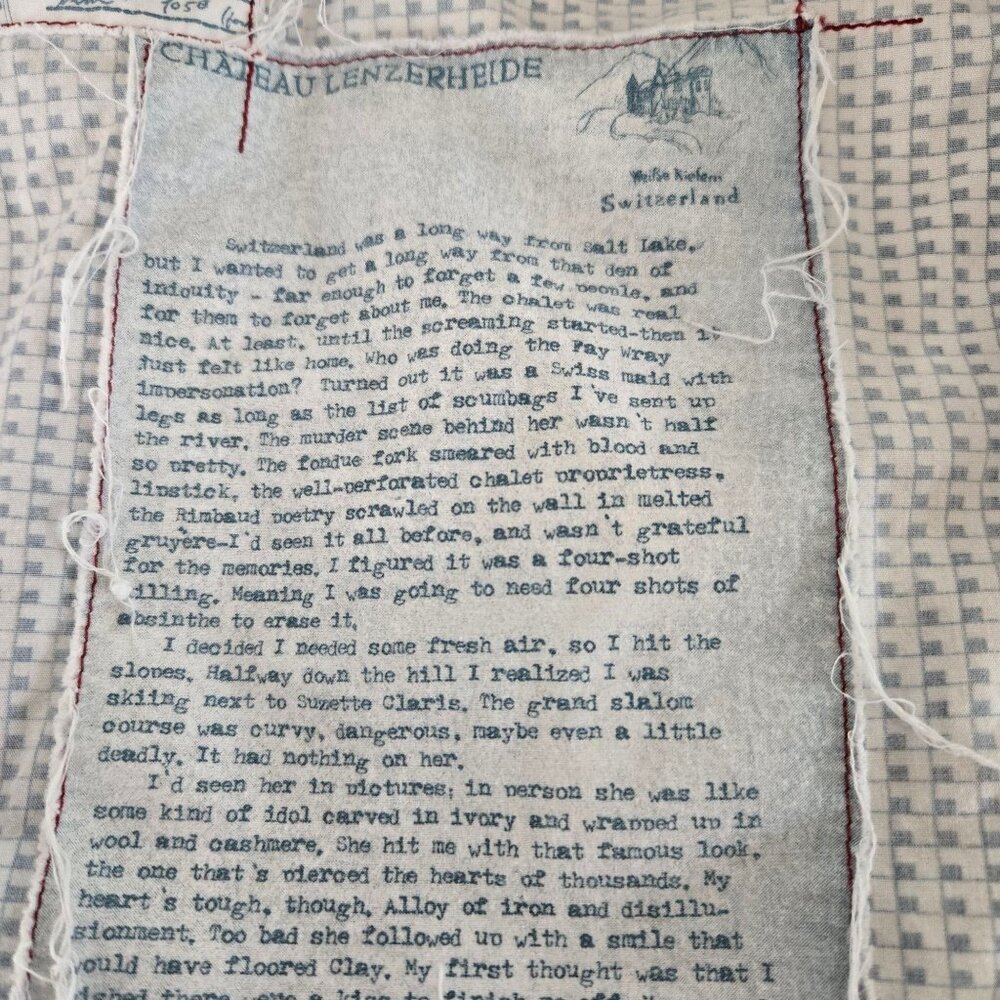 1050
CHATEAU LENZERHEIDE
Weiße Kiefern
Switzerland
Switzerland was a long way from Salt Lake,
but I wanted to get a long way from that den of
iniquity - far enough to forget a few people, and
for them to forget about me. The chalet was real
nice. At least, until the screaming started-then it
just felt like home. Who was doing the Fay Wray
impersonation? Turned out it was a Swiss maid with
legs as long as the list of scumbags I've sent up
the river. The murder scene behind her wasn't half
so pretty. The fondue fork smeared with blood and
lipstick, the well-perforated chalet proprietress,
the Rimbaud poetry scrawled on the wall in melted
gruyère-I'd seen it all before, and wasn't grateful
for the memories. I figured it was a four-shot
killing. Meaning I was going to need four shots of
absinthe to erase it.
I decided I needed some fresh air, so I hit the
slopes. Halfway down the hill I realized I was
skiing next to Suzette Claris. The grand slalom
course was curvy, dangerous, maybe even a little
deadly. It had nothing on her.
I'd seen her in pictures; in person she was like
some kind of idol carved in ivory and wrapped up in
wool and cashmere. She hit me with that famous look,
the one that's pierced the hearts of thousands. My
heart's tough, though. Alloy of iron and disillu-
sionment. Too bad she followed up with a smile that
would have floored Clay. My first thought was that I
wished there were a kiss to finish me off.